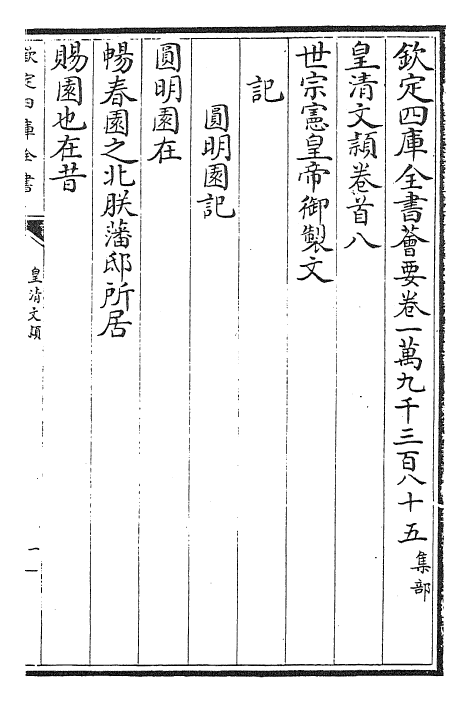 欽定四庫全書薈要卷一萬九千三百八十五 集部
皇清文頴卷首八
世宗憲皇帝御製文
記
圓明園記
圓明園在
暢春園之北朕藩邸所居
賜園也在昔
欽定四庫全書
皇清文頴
一